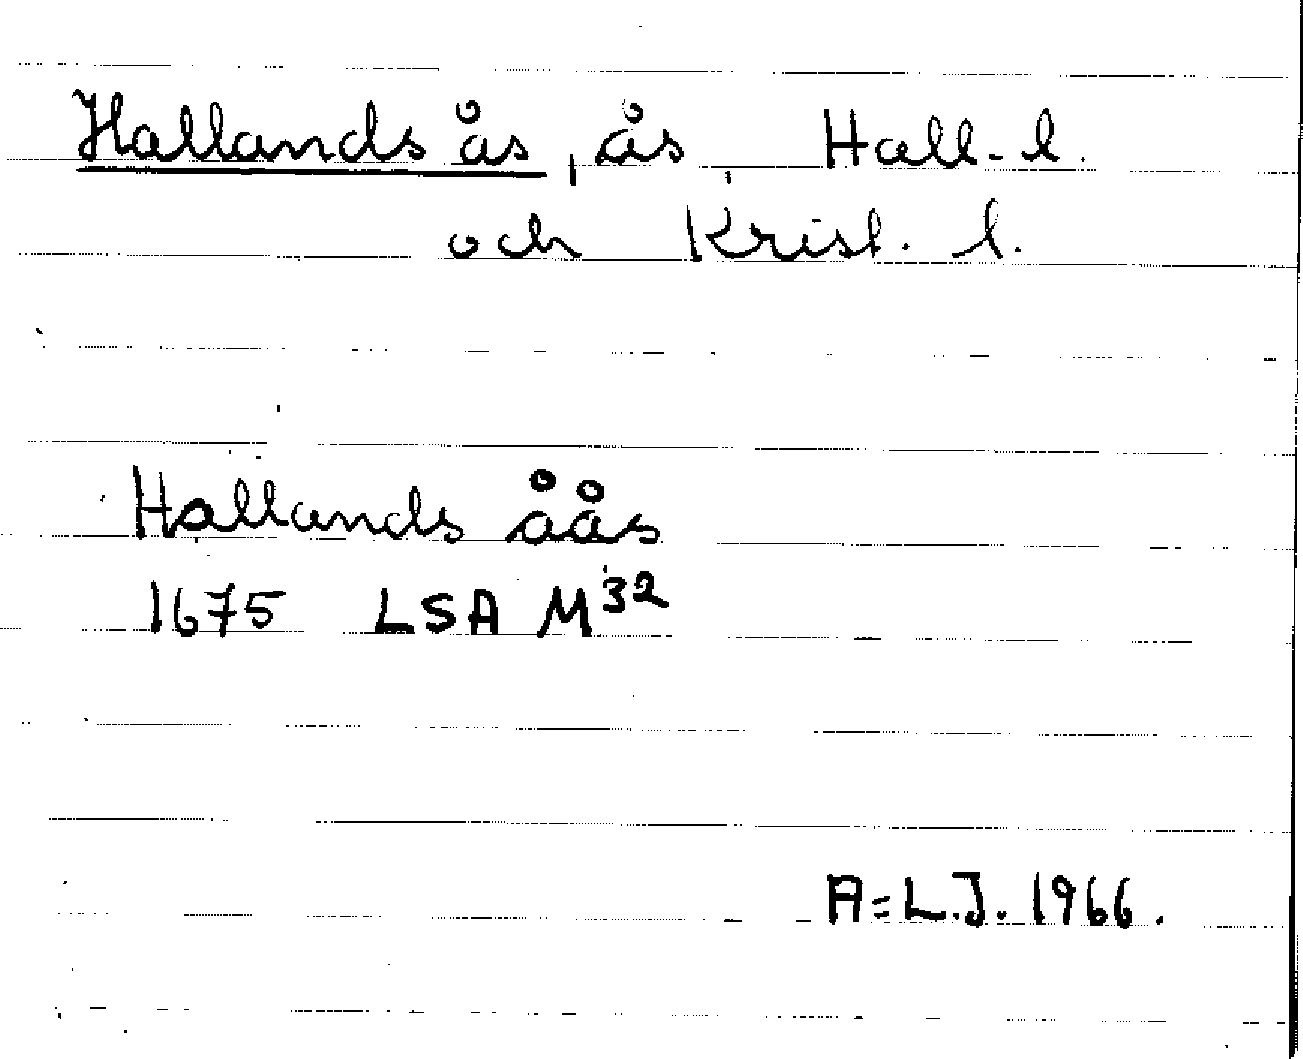 Hallands ås, ås, Hall. l.
och Krist. l.
Hallands åås
1675 LSA M³²
A=L.J. 1966.